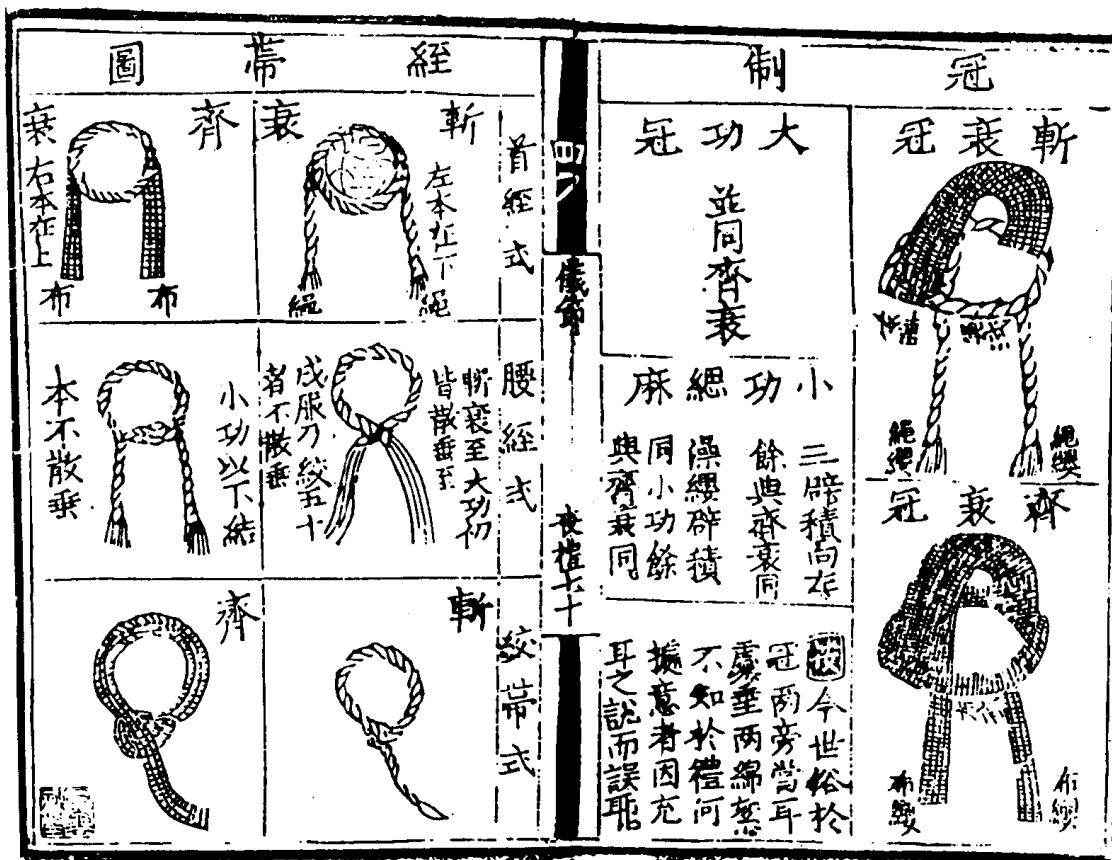 冠制
斬衰冠
繩纓
繩纓
齊衰冠
布纓
布纓
大功冠
並同齊衰
小功緦麻
三辟積向右
餘與齊衰同
澡纓辟積
同小功餘
與齊衰同
今世俗於
冠兩旁當耳
處垂兩綿
不知於禮何
據意者因充
耳之說而誤耶
儀節
絰帶圖
首絰式
斬衰
左本在下
繩
繩
齊衰
右本在上
布
布
腰絰式
斬衰至大功初
皆散垂至
成服乃絞五十
者不散垂
小功以下結
本不散垂
絞帶式
斬
齊